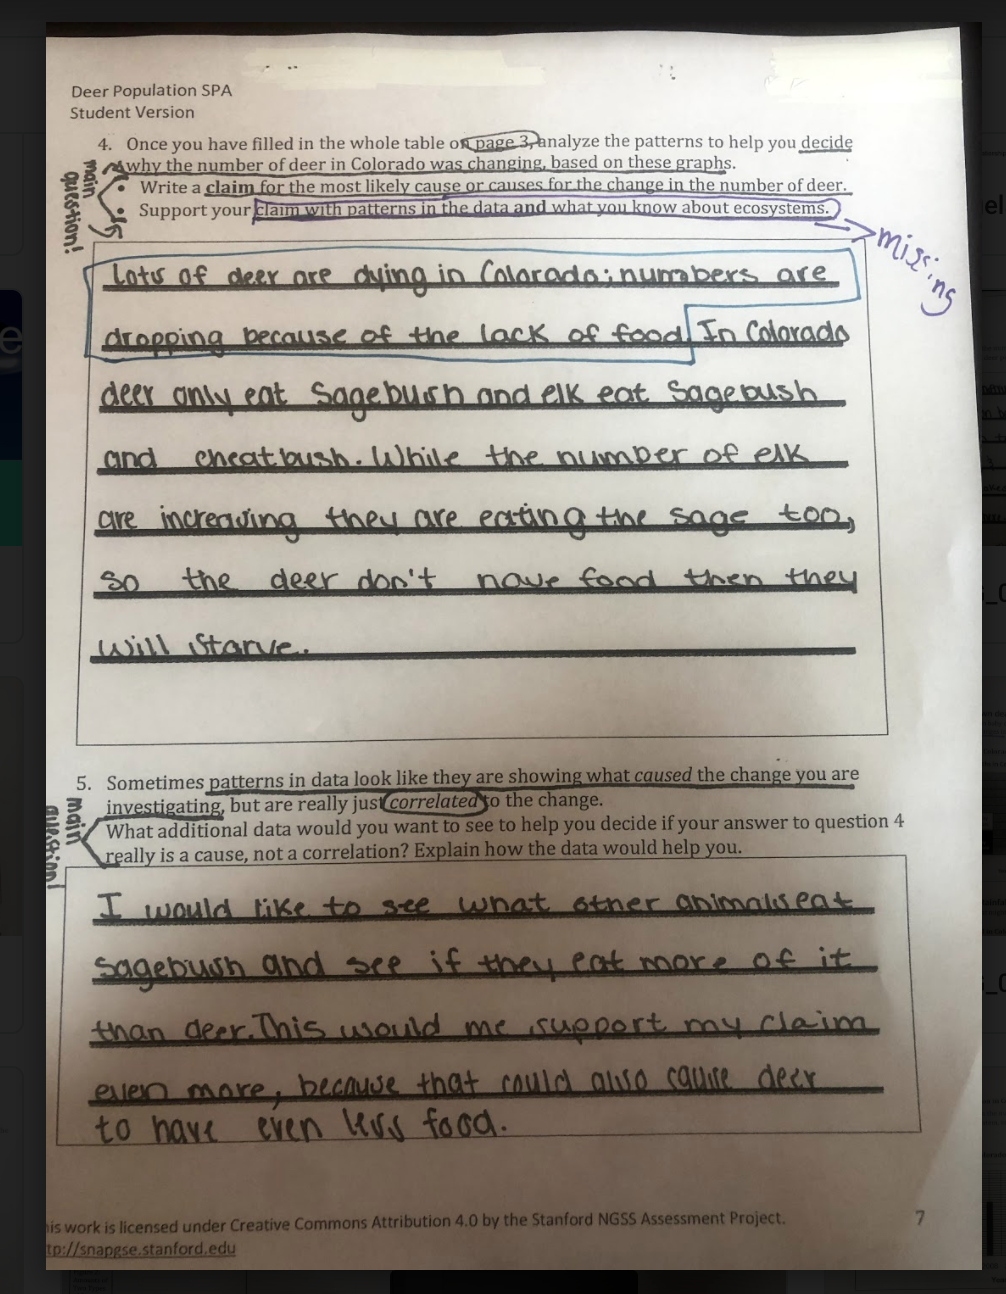 Deer Population SPA
Student Version
4. Once you have filled in the whole table on page 3, analyze the patterns to help you decide
why the number of deer in Colorado was changing, based on these graphs.
• Write a claim for the most likely cause or causes for the change in the number of deer.
• Support your claim with patterns in the data and what you know about ecosystems.
main question!
missing
Lots of deer are dying in Colorado; numbers are
dropping because of the lack of food. In Colorado
deer only eat Sagebush and elk eat Sagebush
and cheatbush. While the number of elk
are increasing they are eating the sage too,
so the deer don't have food then they
will starve.
5. Sometimes patterns in data look like they are showing what caused the change you are
investigating, but are really just correlated to the change.
main question!
What additional data would you want to see to help you decide if your answer to question 4
really is a cause, not a correlation? Explain how the data would help you.
I would like to see what other animals eat
sagebush and see if they eat more of it
than deer. This would me support my claim
even more, because that could also cause deer
to have even less food.
his work is licensed under Creative Commons Attribution 4.0 by the Stanford NGSS Assessment Project.
7
tp://snapgse.stanford.edu